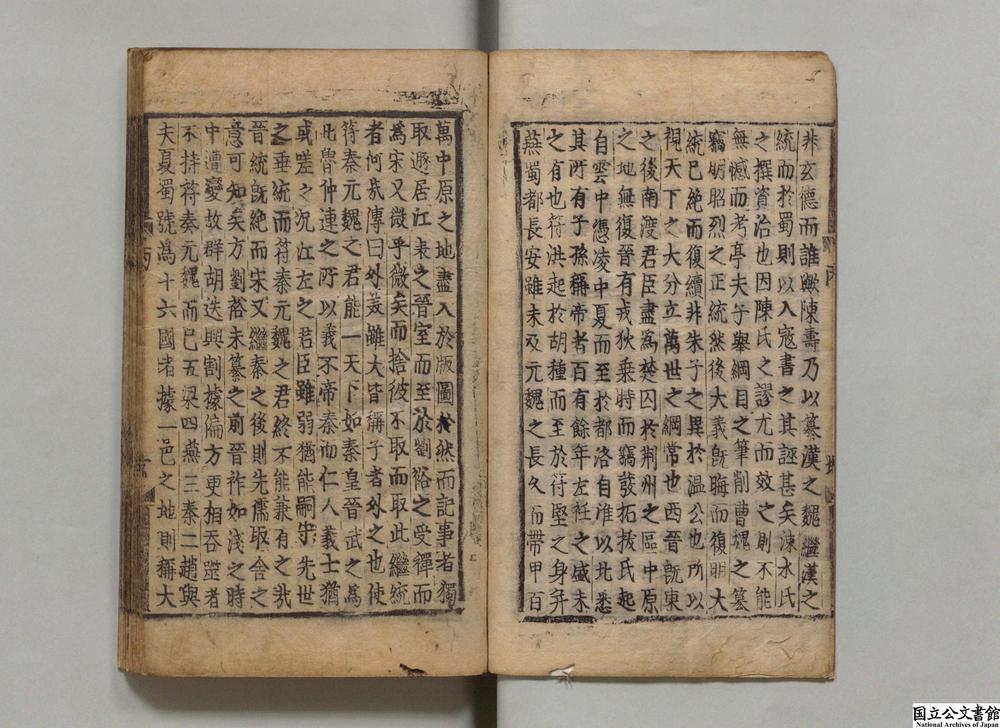 非玄德而誰歟陳壽乃以纂漢之魏繼漢之
統而於蜀則以入寇書之其誣甚矣涑水氏
之撰資治也因陳氏之謬尤而效之則不能
無憾而考亭夫子舉綱目之筆削曹魏之纂
竊明昭烈之正統然後大義旣晦而復明大
統已絶而復續非朱子之異於温公也所以
視天下之大分立萬世之綱常也西晉旣東
之後南渡君臣盡爲楚囚於荆州之區中原
之地無復晉有戎狄乘時而竊發拓拔氏起
自雲中憑凌中夏而至於都洛自淮以北悉
其所有子孫稱帝者百有餘年左衽之盛未
之有也苻洪起於胡種而至於苻堅之身幷
燕蜀都長安雖未及元魏之長久而帶甲百
萬中原之地盡入於版圖於然而記事者獨
取遯居江表之晉室而至於劉裕之受禪而
爲宋又微乎微矣而捨彼不取而取此繼統
者何㢤傳曰外夷雖大皆稱子者外之也使
苻秦元魏之君能一天下如秦皇晉武之爲
此魯仲連之所以義不帝秦而仁人義士猶
或嗟之况江左之君臣雖弱猶能嗣守先世
之垂統而苻秦元魏之君終不能兼有之㢤
晉統旣絶而宋又繼秦之後則先儒取舍之
意可知矣方劉裕未纂之前晉祚如淺之時
中遭變故群胡迭興割據偏方更相吞噬者
不持苻秦元魏而已五梁四燕三秦二趙與
夫夏蜀號爲十六國者據一邑之地則稱大
国立公文書館
National Archives of Japan